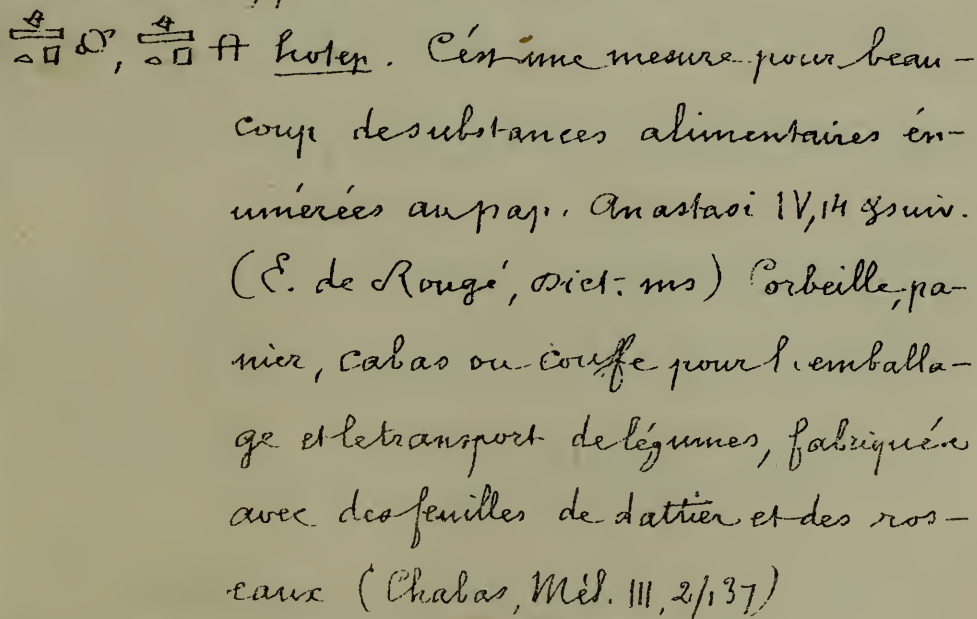 𓊵𓏏𓊪, 𓊵𓏏𓊪 hotep. C'est une mesure pour beau-
coup de substances alimentaires én-
umérées au pap. Anastasi IV, 14 & suiv.
(E. de Rougé, Dict. ms) Corbeille, pa-
nier, cabas ou couffe pour l'emballa-
ge et le transport de légumes, fabriquée
avec des feuilles de dattier et des ros-
eaux (Chabas, Mél. III, 2/137)